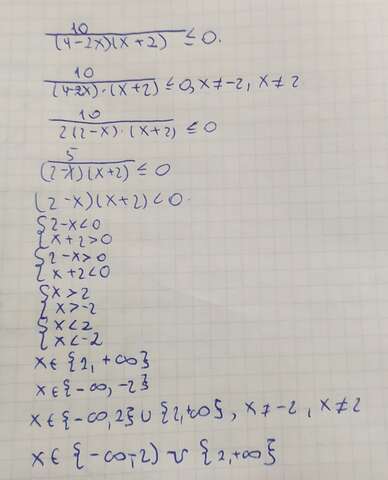 10/((4-2x)(x+2)) ≤ 0.
10/((4-2x)·(x+2)) ≤ 0, x≠-2, x≠2
10/(2(2-x)·(x+2)) ≤ 0
5/((2-x)(x+2)) ≤ 0
(2-x)(x+2)<0.
{2-x<0
{x+2>0
{2-x>0
{x+2<0
{x>2
{x>-2
{x<2
{x<-2
x∈{2,+∞}
x∈{-∞,-2}
x∈{-∞,2}∪{2,+∞}, x≠-2, x≠2
x∈{-∞,-2)∪{2,+∞}